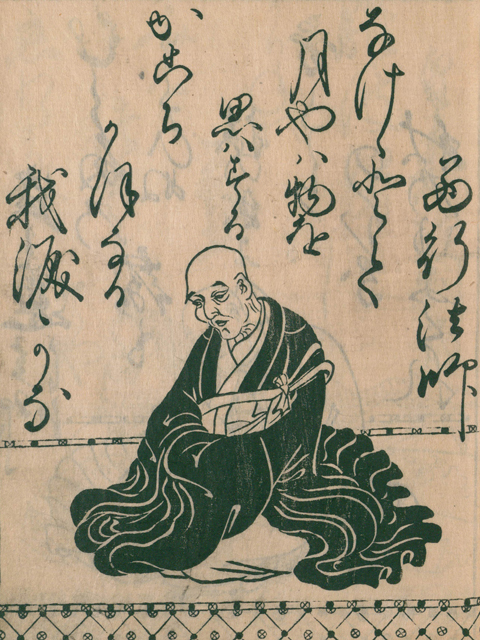 西行法師
なけゝとて
月やは物を
思はする
かこち
かほなる
我涙かな